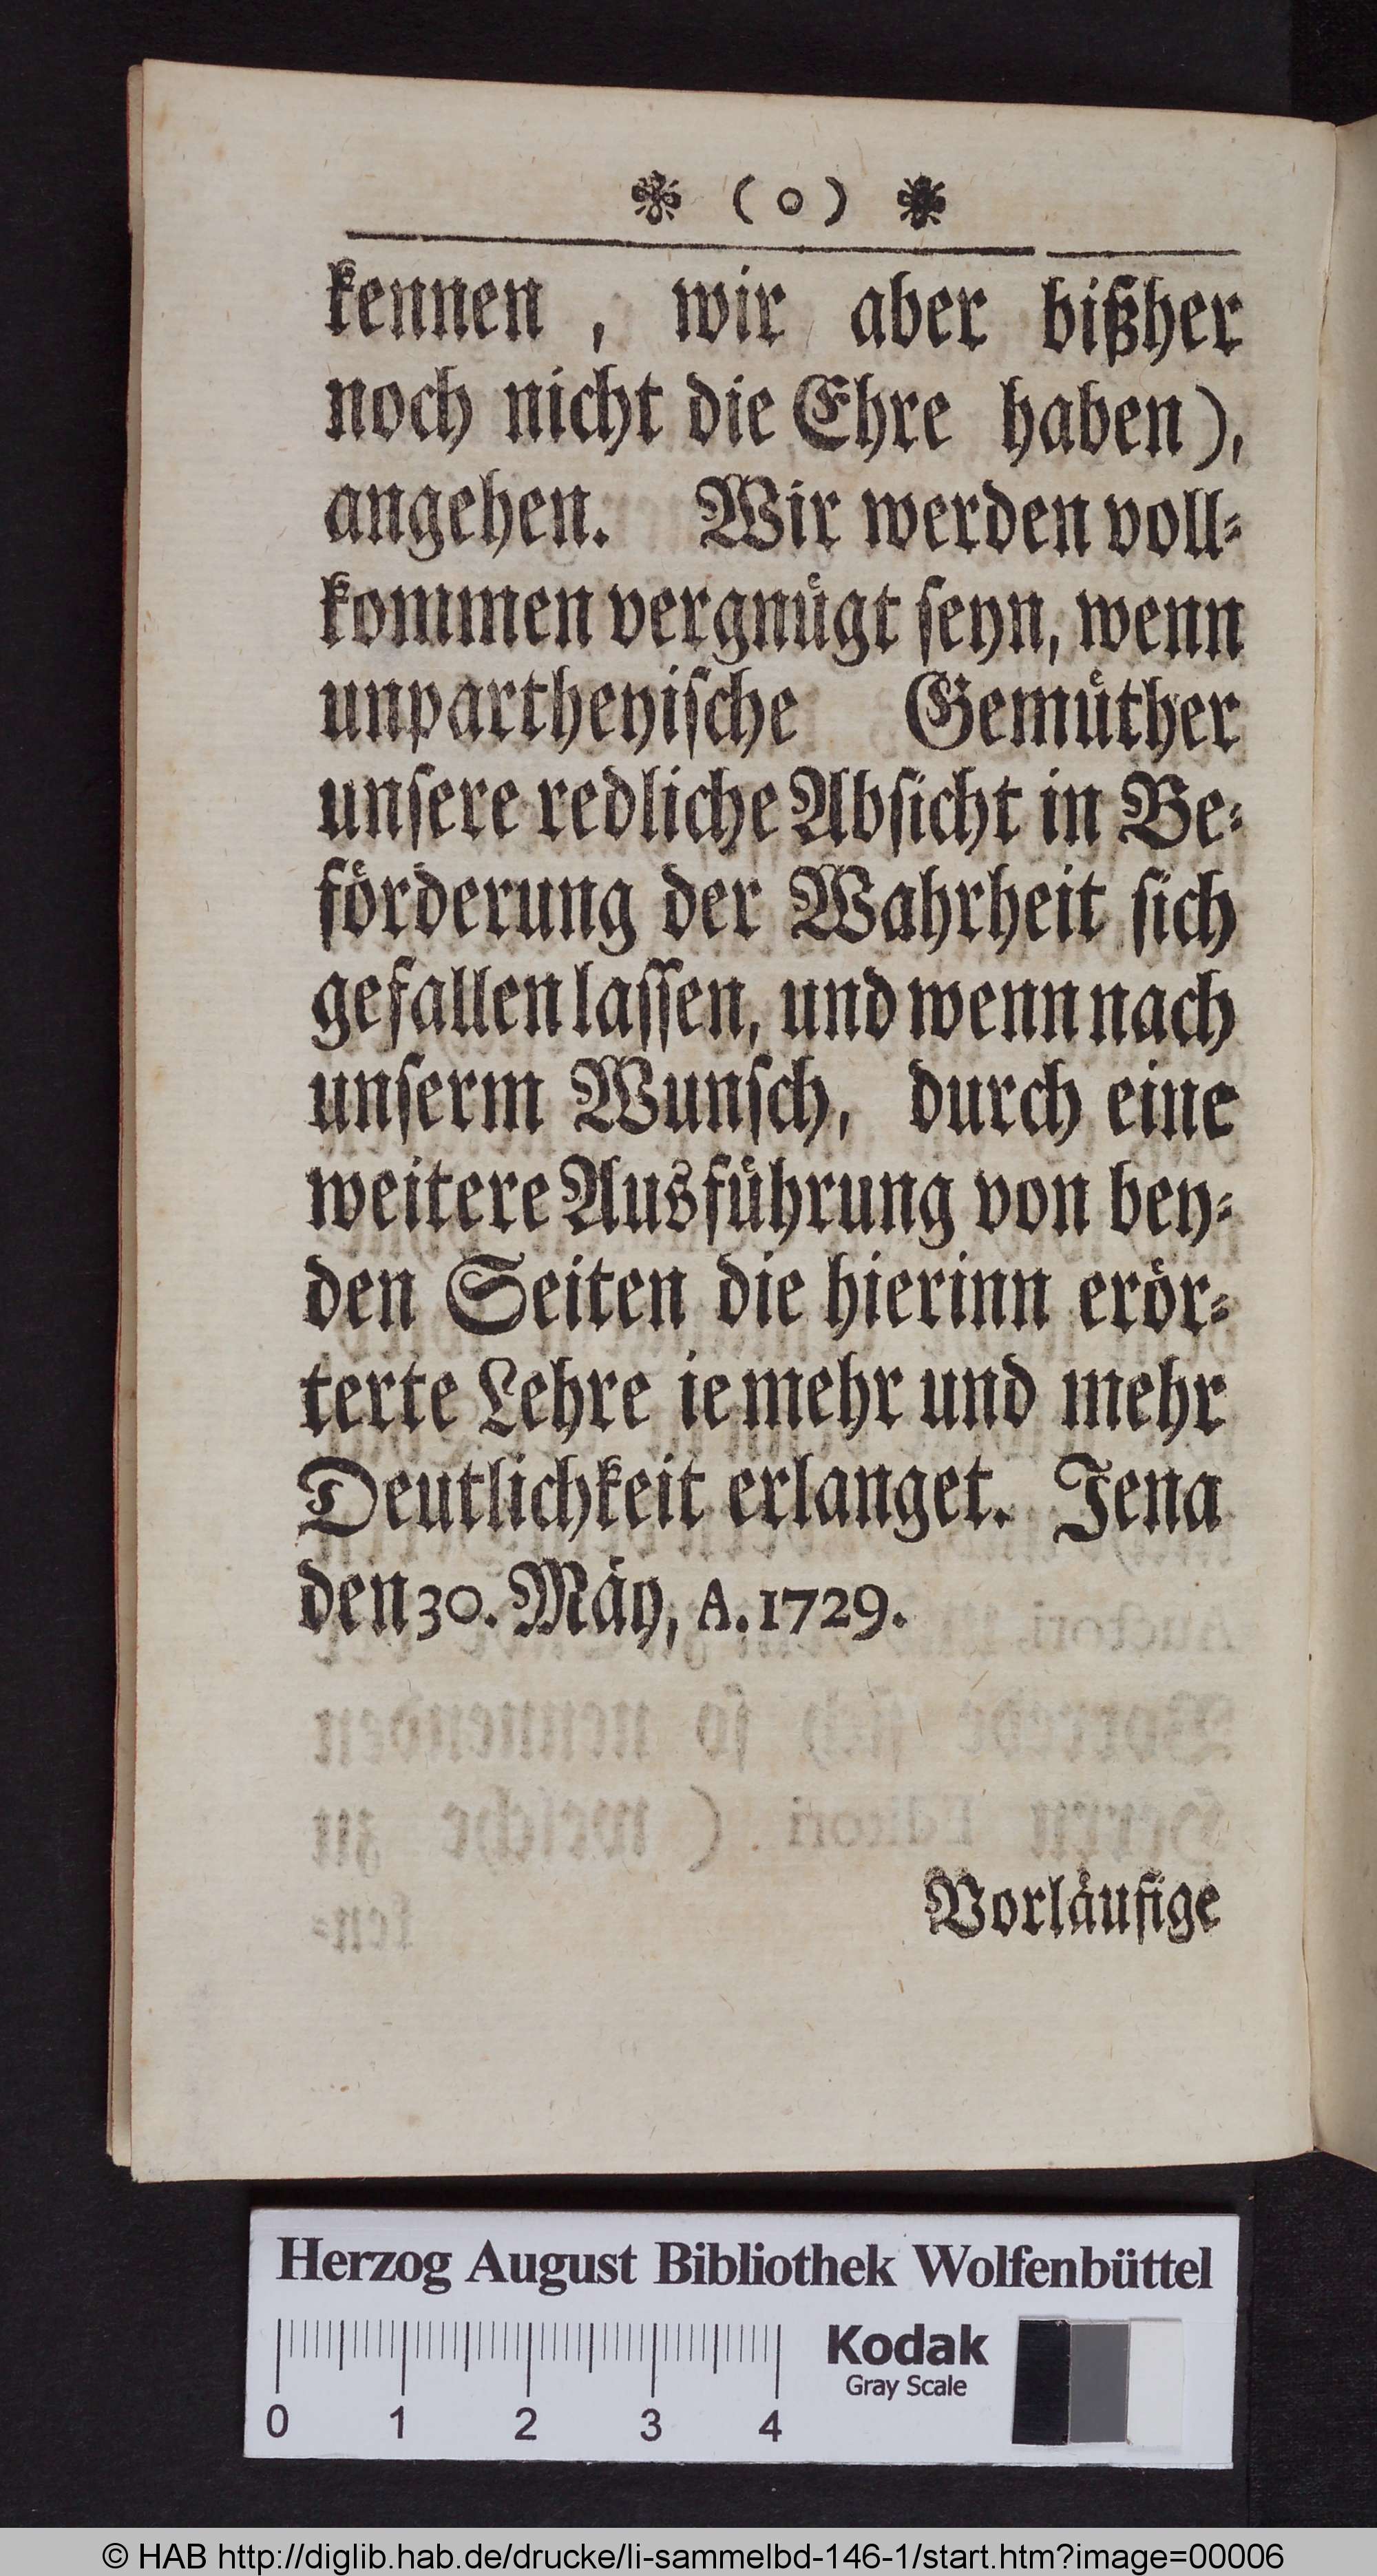 ❋ (o) ❋
kennen, wir aber bißher
noch nicht die Ehre haben),
angehen. Wir werden voll⸗
kommen vergnuͤgt ſeyn, wenn
unpartheyiſche Gemuͤther
unſere redliche Abſicht in Be⸗
foͤrderung der Wahrheit ſich
gefallen laſſen, und wenn nach
unſerm Wunſch, durch eine
weitere Ausfuͤhrung von bey⸗
den Seiten die hierinn eroͤr⸗
terte Lehre ie mehr und mehr
Deutlichkeit erlanget. Jena
den 30. Maͤy, A. 1729.
Vorlaͤufige
Herzog August Bibliothek Wolfenbüttel
Kodak
Gray Scale
0 1 2 3 4
© HAB http://diglib.hab.de/drucke/li-sammelbd-146-1/start.htm?image=00006